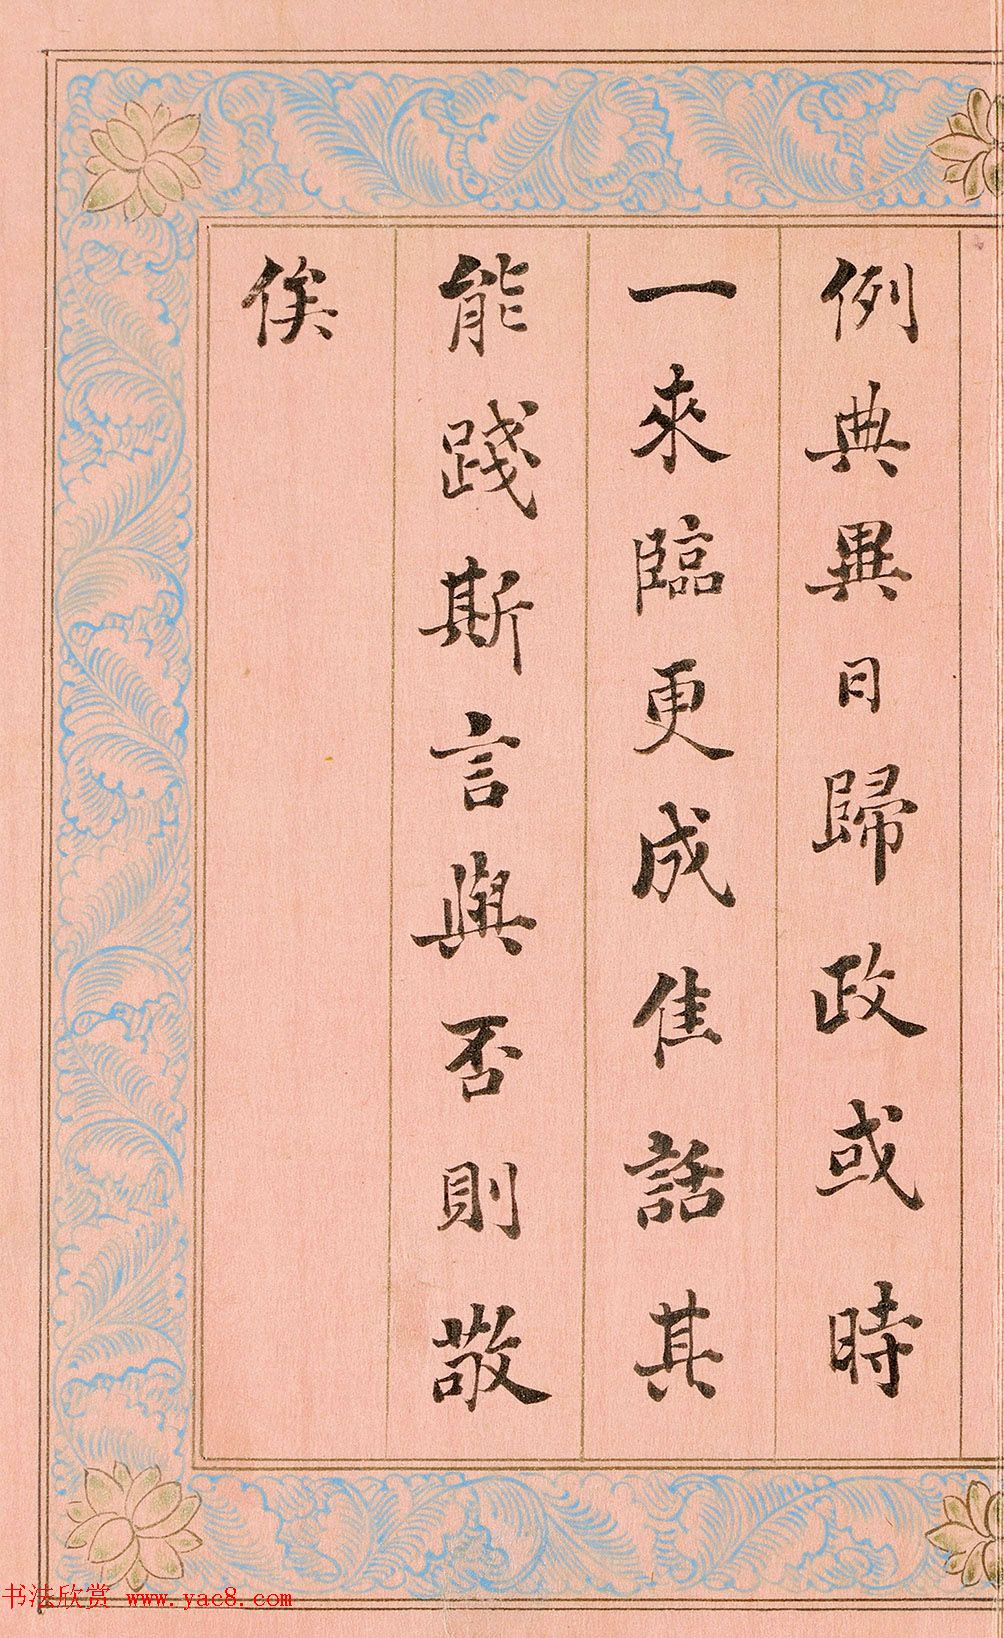 例典異日歸政或時
一來臨更成佳話其
能踐斯言與否則敬
俟
书法欣赏 www.yac8.com